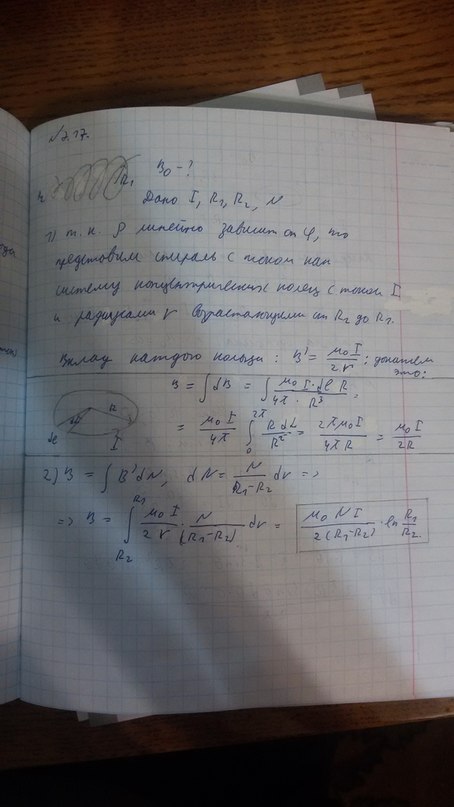 № 7.17.
R₁
B₀ - ?
R₂
Дано I, R₁, R₂, N
1) т. к. ρ линейно зависит от φ, то
представим спираль с током как
систему концентрических колец с током I
и радиусами r возрастающими от R₂ до R₁.
Вклад каждого кольца: B' = μ₀I / 2r ; докажем
это:
B = ∫dB = ∫ μ₀ I · dl R / 4π · R³ ,
R
dl
I
= μ₀ I / 4π ∫₀^2π R dα / R² = 2π μ₀ I / 4π R = μ₀ I / 2R
2) B = ∫ B' dN, dN = N / R₁-R₂ dr =>
=> B = ∫_R₂^R₁ μ₀ I / 2 r · N / (R₁-R₂) dr = μ₀ N I / 2(R₁-R₂) · ln R₁ / R₂.